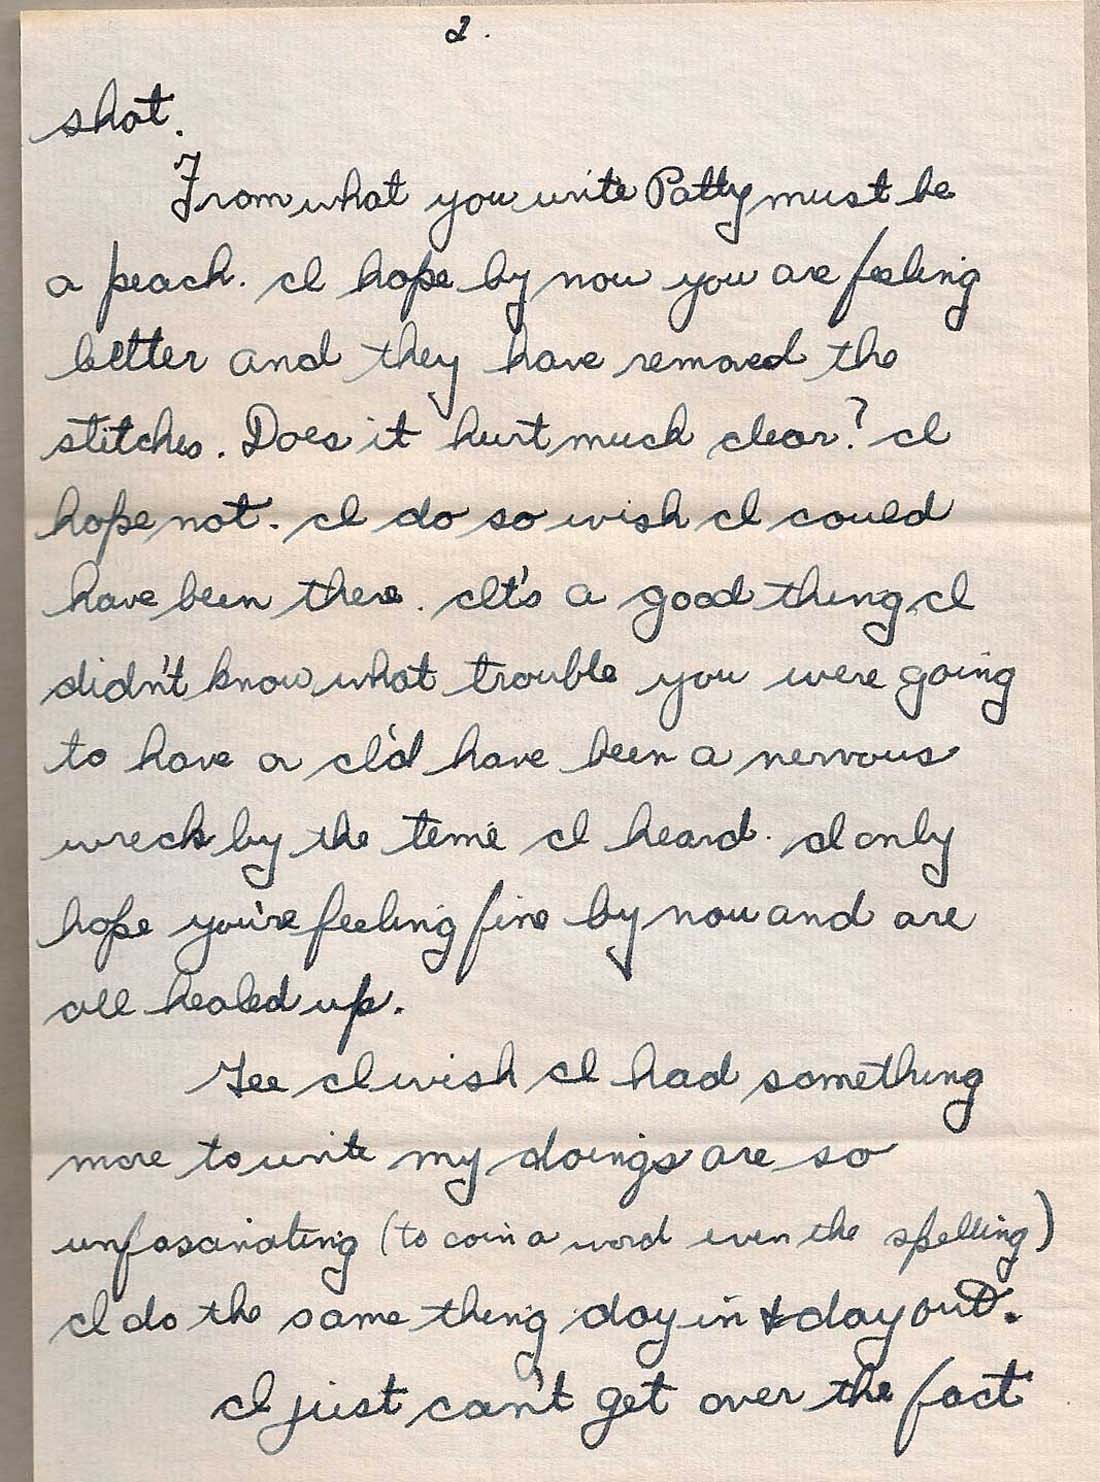 2.
shot.
From what you write Patty must be
a peach. I hope by now you are feeling
better and they have removed the
stitches. Does it hurt much dear? I
hope not. I do so wish I could
have been there. It's a good thing I
didn't know what trouble you were going
to have or I'd have been a nervous
wreck by the time I heard. I only
hope you're feeling fine by now and are
all healed up.
Gee I wish I had something
more to write my doings are so
unfascinating (to coin a word even the spelling)
I do the same thing day in & day out.
I just can't get over the fact